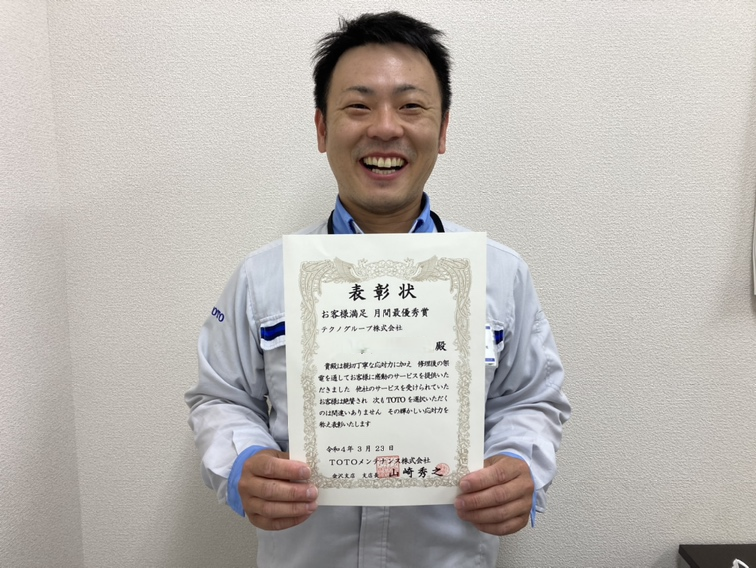 表彰状
お客様満足 月間最優秀賞
テクノグループ株式会社
殿
貴殿は親切丁寧な応対力に加え 修理後の架
電を通してお客様に感動のサービスを提供いた
だきました 他社のサービスを受けられていた
お客様は絶賛され 次もTOTOを選択いただく
のは間違いありません その輝かしい応対力を
称え表彰いたします
令和4年3月23日
TOTOメンテナンス株式会社
金沢支店 支店長 山崎秀之
TOTO